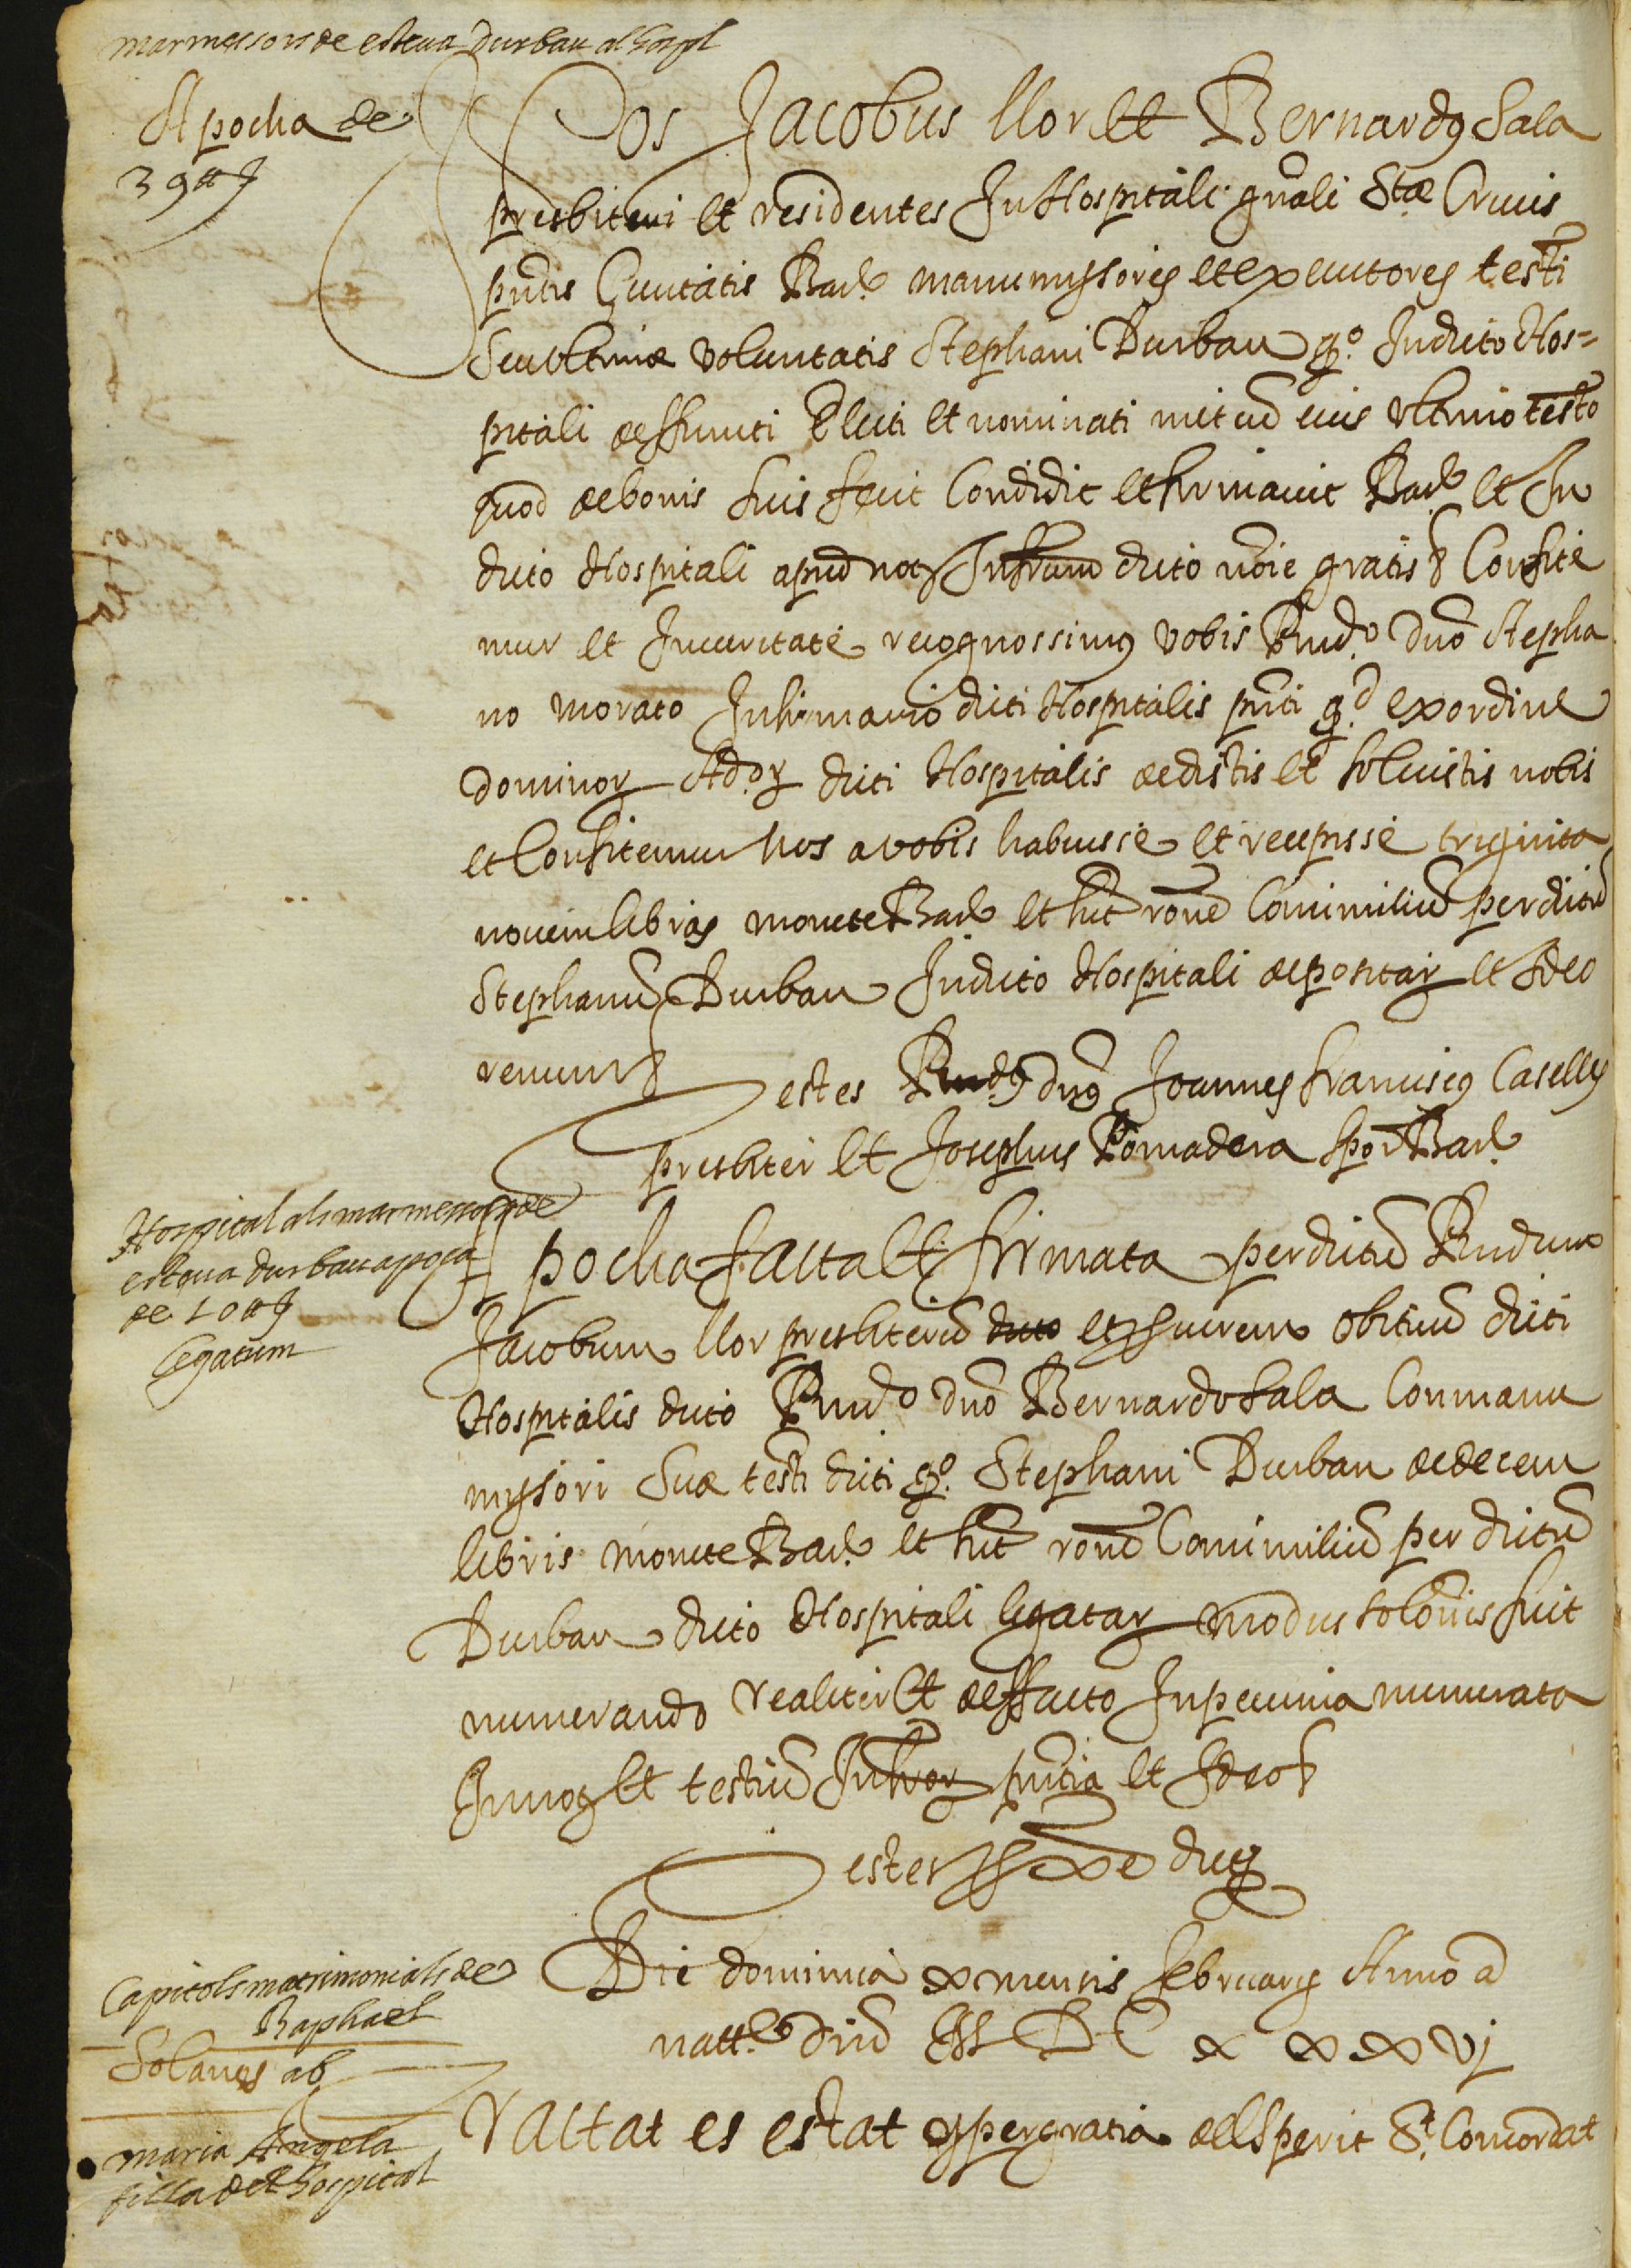 marmessors de esteva Durbau al hospl
Apocha de
39 ₶ J
Nos Jacobus llor et Bernardꝯ Sala
presbiteri et residentes In Hospitali gñali Stæ Crucis
pñtis Civitatis Barñe manumissores et exequtores testi
seu ultimæ voluntatis Stephani Durbau qº. In dicto Hos=
pitali deffuncti Electi et nominati
quod de bonis suis fecit Condidit et firmavit Barñe et In
dicto Hospitali apud notm Infrum dicto noie gratis & Confite
mur et In veritate recognossimus vobis Rndº dño Stepha
no morato Infirmario dicti Hospitalis pñti qd ex ordine
Dominorꝝ Adorꝝ dicti Hospitalis dedistis et solvistis nobis
et Confitemur Nos a vobis habuisse et recepisse triginta
novem libras monete Barñe et sut rone Consimilium per dictũ
Stephanũ Durbau In dicto Hospitali depositarꝝ et Ideo
renunt &
Testes Rndꝯ dñs Joannes franciscꝯ Casellꝯ
presbiter et Josephus Pomadera spor Barñe
Hospital als marmessors de
esteva durbau apoca
de 10 ₶ J
legatum
Apocha facta et firmata per dictũ Rndum
Jacobum llor presbiterũ obituũ dicti
Hospitalis dicto Rndº dño Bernardo Sala Conmanu
missori suæ testi dicti qº. Stephani Durbau de decem
libris monete Barñe et sut rone Consimilium per dictũ
Durbau dicto Hospitali legatarꝝ modus solonis fuit
numerando realiter et deffacto In pecunia numerata
In noꝝ et testiũ Infrorꝝ pñtia et Ideo &
Testes
Capitols matrimonials de
Raphael
Solanes ab
maria Angela
filla del hospital
Die dominica x mensis februarij Anno a
natte Dni M DC x x x vj
Tractat es estat y per gratia del Sperit St. Concordat